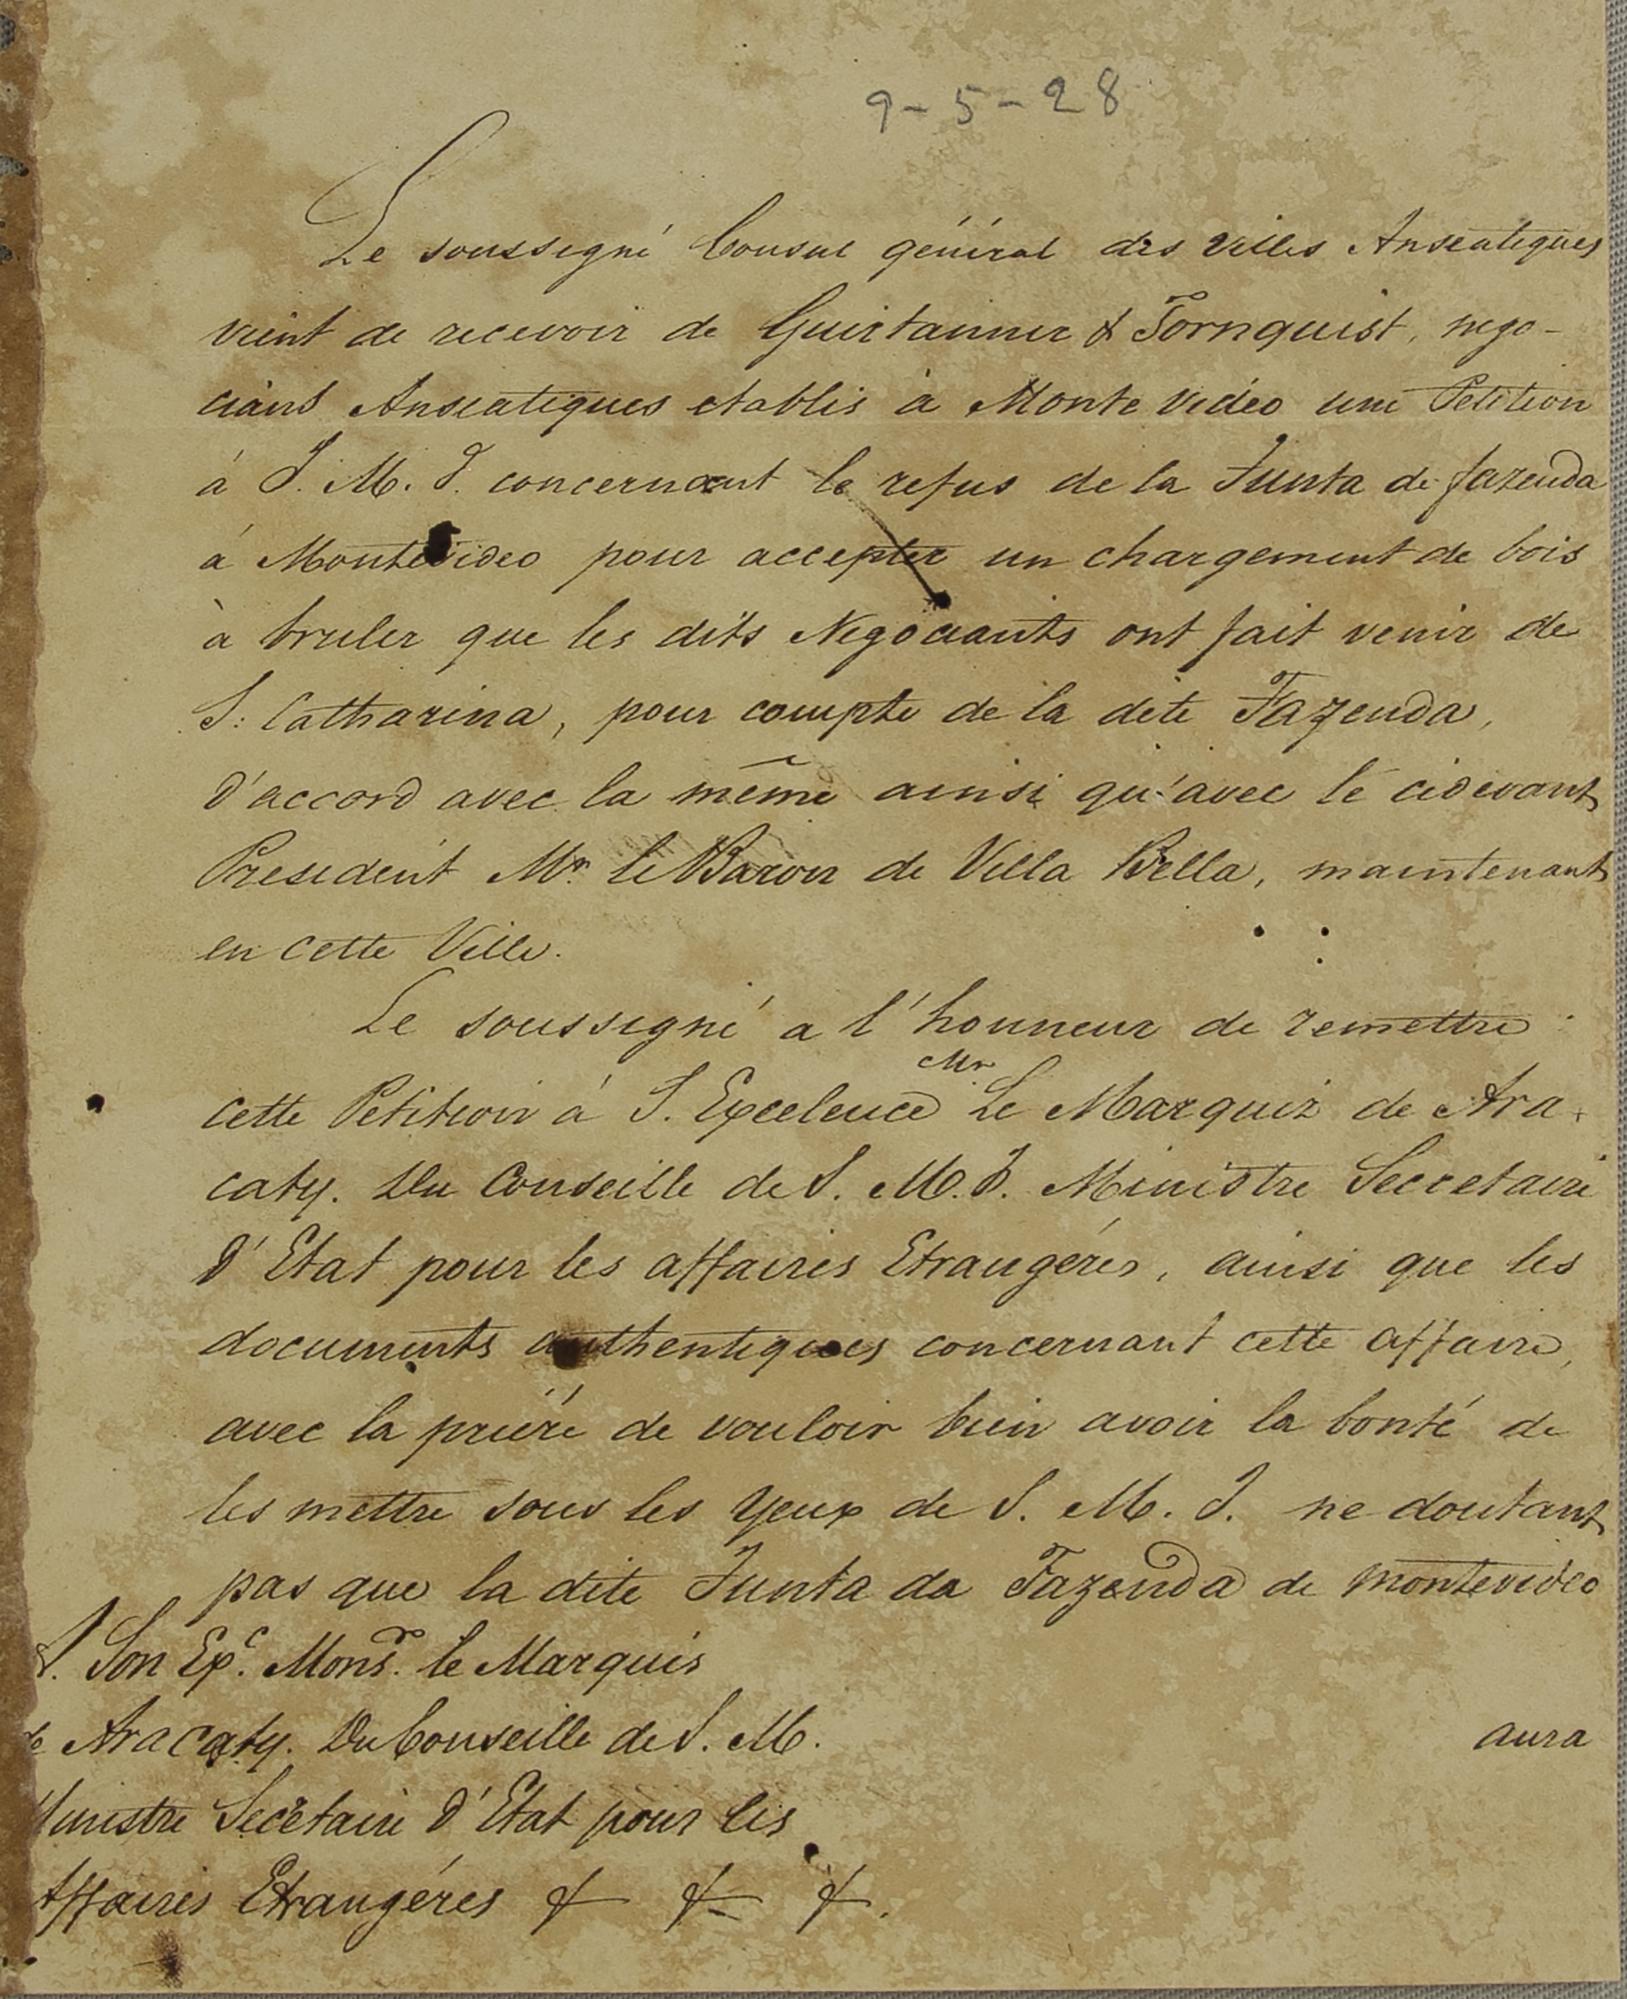 9-5-28
Le soussigné Consul général des villes Anseatiques
vient de recevoir de Guirtanner & Tornquist, nego-
cians Anseatiques etablis à Monte Vidéo une Petition
à S. M. I. concernant le refus de la Junta de fazenda
à Montevideo pour accepter un chargement de bois
à bruler que les dits Negociants ont fait venir de
S: Catharina, pour compte de la dite Fazenda,
d'accord avec la même ainsi qu'avec le cidevant
President Mr. le Baron de Villa Bella, maintenant
en cette Ville.
Le soussigné a l'honneur de remettre
cette Petition à S. Excelence Mr Le Marquis de Ara-
caty. Du Conseille de S. M. I. Ministre Secretaire
d'Etat pour les affaires Etrangéres, ainsi que les
documents authentiques concernant cette affaire,
avec la priére de vouloir bien avoir la bonté de
les mettre sous les yeux de S. M. I. ne doutant
pas que la dite Junta da Fazenda de Montevideo
A. Son Exc. Monsr. le Marquis
de Aracaty. Du Conseille de S. M.
aura
Ministre Secétaire d'Etat pour les
Affaires Etrangéres & & &.